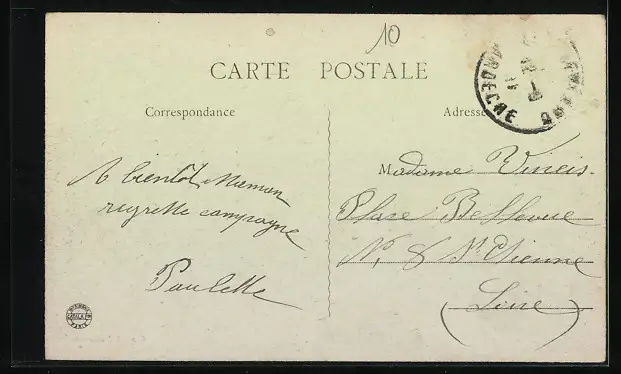 10
CARTE POSTALE
Correspondance
Adresse
ARDECHE
Madame Vincis.
A bientôt Maman
Place Bellevue
regrette campagne
N. 8 St Etienne
Paulette
(Loire)
PARIS